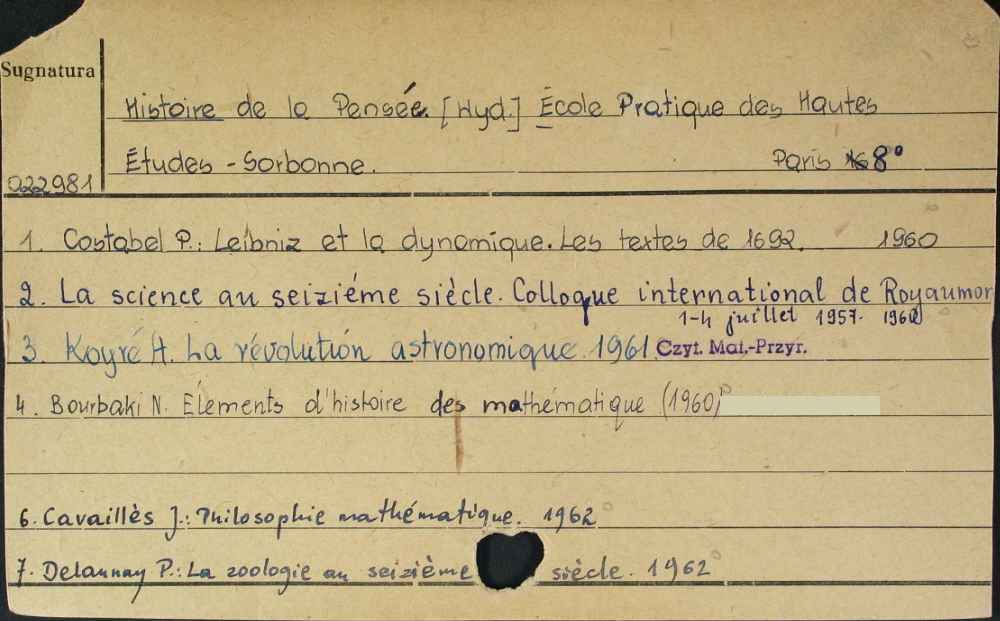 Sugnatura
Histoire de la Pensée. [Wyd.] École Pratique des Hautes
Études - Sorbonne. Paris 8°
022981
1. Costabel P.: Leibniz et la dynamique. Les textes de 1692. 1960
2. La science au seiziéme siècle. Colloque international de Royaumon
1-4 juillet 1957. 1960
3. Koyré A. La révolution astronomique. 1961 Czyt. Mat.-Przyr.
4. Bourbaki N. Élements d'histoire des mathématique (1960)
6. Cavaillès J.: Philosophie mathématique. 1962
7. Delaunay P.: La zoologie au seizième siècle. 1962